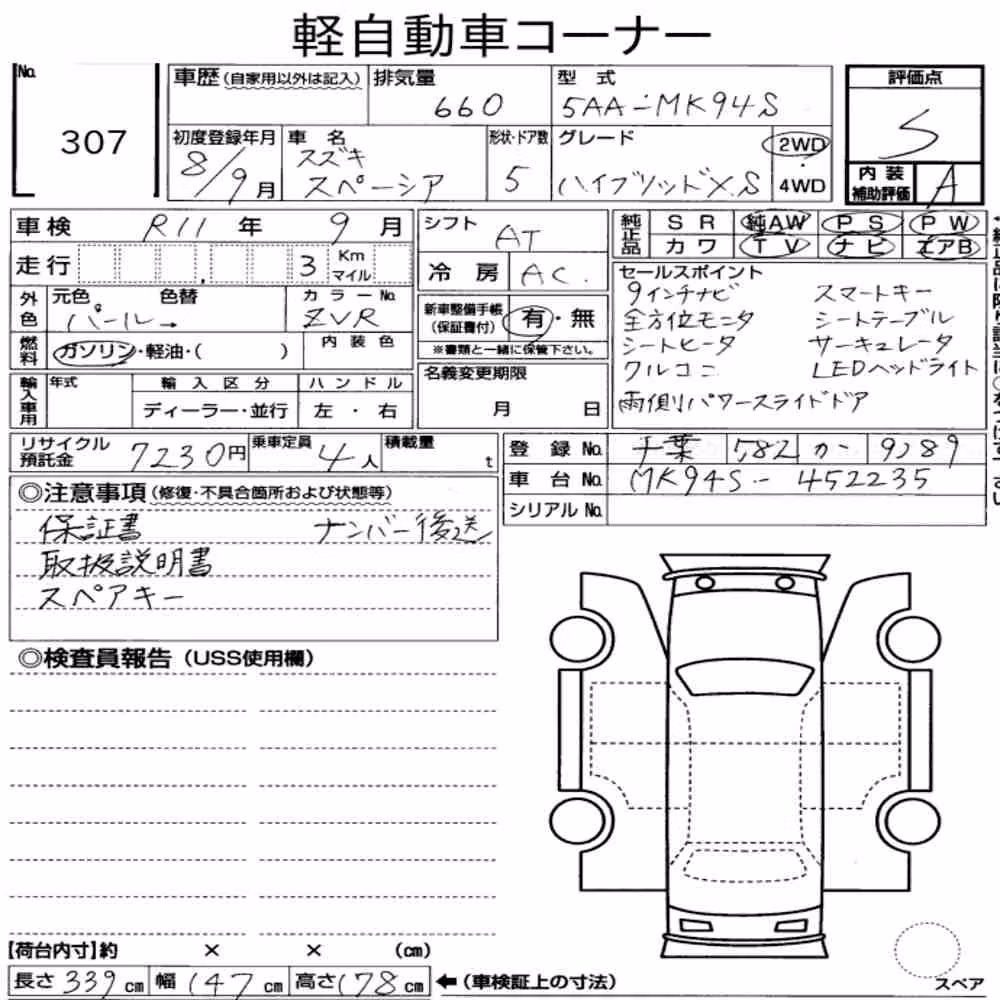 軽自動車コーナー
No.
307
車歴(自家用以外は記入)
排気量
660
型式
5AA-MK94S
評価点
S
内装補助評価
A
初度登録年月
8/9月
車名
スズキ
スペーシア
形状・ドア数
5
グレード
ハイブリッドXS
2WD
・
4WD
車検 R11年 9月
走行 3 Km マイル
外色
元色 色替
パール→
カラーNo.
ZVR
燃料
ガソリン・軽油・( )
内装色
輸入車用
年式
輸入区分
ディーラー・並行
ハンドル
左・右
シフト
AT
冷房
AC.
新車整備手帳(保証書付)
有・無
※書類と一緒に保管下さい。
名義変更期限
月 日
純正品
SR 純AW PS PW
カワ TV ナビ エアB
セールスポイント
9インチナビ スマートキー
全方位モニタ シートテーブル
シートヒータ サーキュレータ
クルコン LEDヘッドライト
両側パワースライドドア
リサイクル預託金
7230円
乗車定員
4人
積載量
t
登録No. 千葉 582 か 9789
車台No. MK94S-452235
シリアルNo.
◎注意事項(修復・不具合箇所および状態等)
保証書 ナンバー後送
取扱説明書
スペアキー
◎検査員報告(USS使用欄)
【荷台内寸】約 × × (cm)
長さ339cm 幅147cm 高さ178cm ←(車検証上の寸法)
スペア